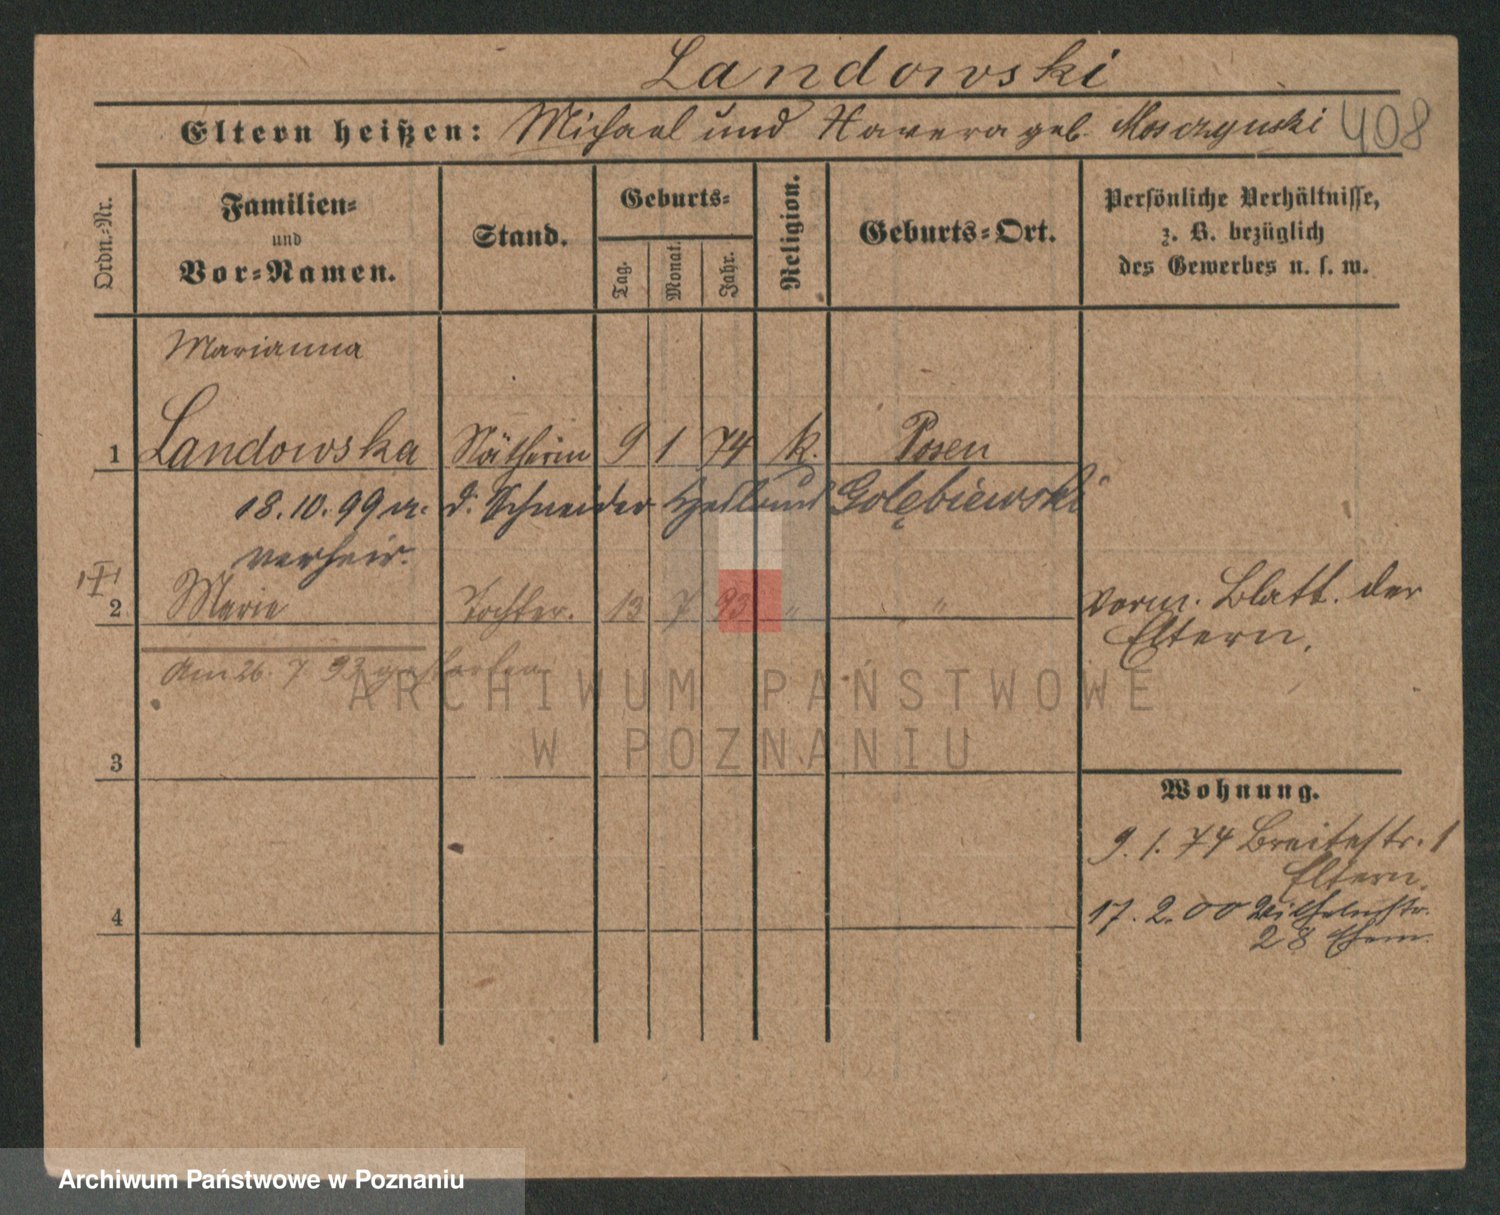 Landowski
Eltern heißen: Michael und Xavera geb. Mosczynski 408
Ordn.-Nr.
Familien-
und
Vor-Namen.
Stand.
Geburts-
Tag.
Monat.
Jahr.
Religion.
Geburts-Ort.
Persönliche Verhältnisse,
z. B. bezüglich
des Gewerbes u. s. w.
Marianna
1 Landowska Nätherin 9 1 74 k. Posen
18.10.99 m. d. Schneider Gołębiewski
verheir.
2 Marie Tochter. 13 7 93 " "
vorm. Blatt. der
Eltern.
Am 26. 7 93 gestorben
3
4
Wohnung.
9. 1. 74 Breitestr. 1
Eltern.
17. 2. 00 Wilhelmstr.
28 Ehem.
ARCHIWUM PAŃSTWOWE
W POZNANIU
Archiwum Państwowe w Poznaniu